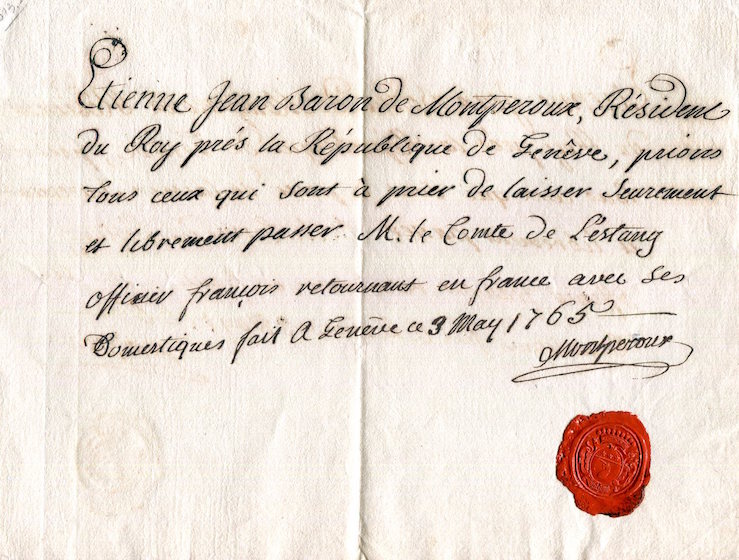 Etienne Jean Baron de Montperoux, Résident
du Roy prés la République de Genêve, prions
tous ceux qui sont à prier de laisser seurement
et librement passer M. le Comte de L'éstang
officier françois retournant en france avec ses
Domestiques fait A Genêve ce 3 May 1765
Montperoux